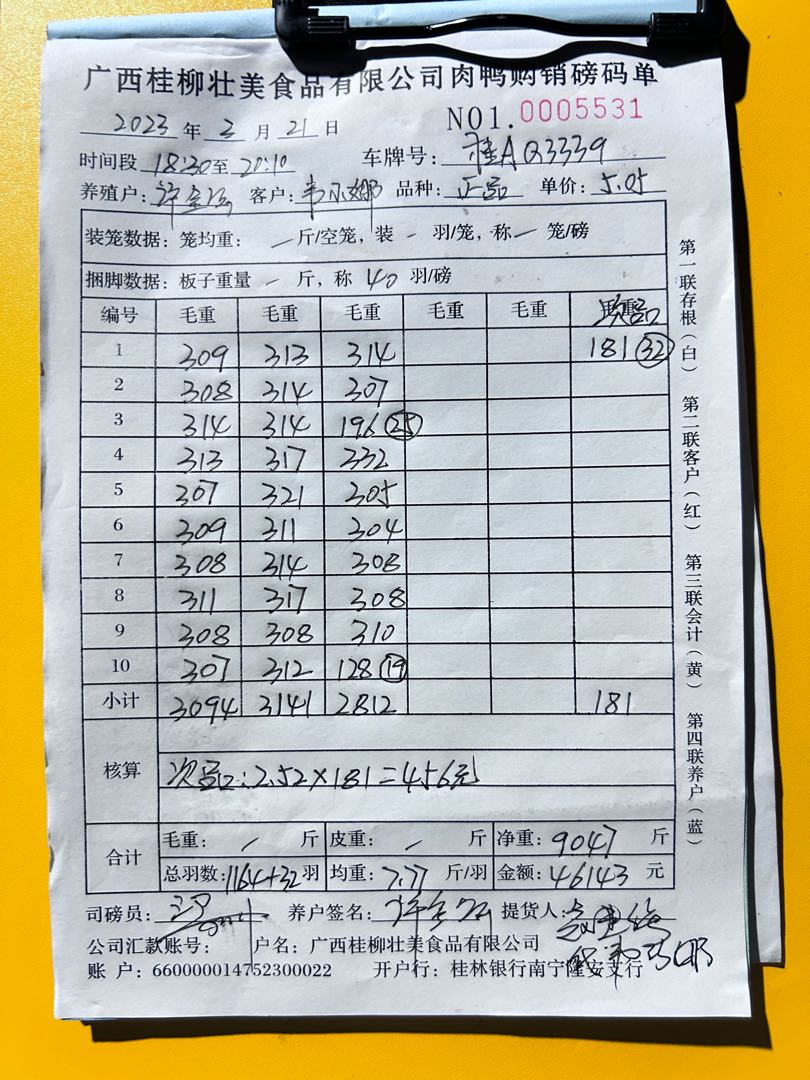 广西桂柳壮美食品有限公司肉鸭购销磅码单
2023 年 3 月 21 日 NO1. 0005531
时间段 18:30 至 20:10 车牌号: 桂A Q3339
养殖户: 客户: 品种: 正品 单价: 5.05
装笼数据: 笼均重: — 斤/空笼, 装 - 羽/笼, 称 — 笼/磅
捆脚数据: 板子重量 - 斤, 称 40 羽/磅
编号 毛重 毛重 毛重 毛重 毛重 次品
1 309 313 314 181 (32)
2 308 314 307
3 314 314 196 (25)
4 313 317 332
5 307 321 305
6 309 311 304
7 308 314 308
8 311 317 308
9 308 308 310
10 307 312 128 (19)
小计 3094 3141 2812 181
核算 次品: 2.52×181=456元
合计 毛重: / 斤 皮重: - 斤 净重: 9047 斤
总羽数: 1164+32 羽 均重: 7.77 斤/羽 金额: 46143 元
司磅员: 养户签名: 提货人:
公司汇款账号: 户名: 广西桂柳壮美食品有限公司
账 户: 660000014752300022 开户行: 桂林银行南宁隆安支行
第一联存根(白) 第二联客户(红) 第三联会计(黄) 第四联养户(蓝)